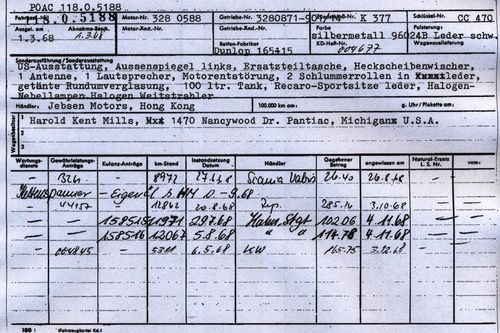 POAC 118.0.5188
Fahrgestell-Nr. 118.0.5188 Motor-Nr. 328 0588 Getriebe-Nr. 3280871-90 K 377 Schlüssel-Nr. CC 470
Ausgel. am 1.3.68 Abnahme-Besch. 1.3.68 Motor-Rad.-Nr. Getriebe-Rad.-Nr. silbermetall 96024B Leder schw.
Reifen-Fabrikat Dunlop 165415 KD-Heft-Nr. Wagenauslieferung
Sonderausführung/Sonderausstattung
US-Ausstattung, Aussenspiegel links, Ersatzteiltasche, Heckscheibenwischer,
1 Antenne, 1 Lautsprecher, Motorentstörung, 2 Schlummerrollen in leder,
getänte Rundumverglasung, 100 ltr. Tank, Recaro-Sportsitze leder, Halogen-
Nebellampen Halogen Weitstrahler
Händler: Jebsen Motors, Hong Kong 100.000 km am: g. Uhr/Plakette am:
Wagenbesitzer
Harold Kent Mills, 1470 Nancywood Dr. Pantiac, Michigan U.S.A.
Wartungs-dienste Gewährleistungs-Anträge Kulanz-Anträge km-Stand Instandsetzung Datum Händler Gegebener Betrag angewiesen am Natural-Ersatz L. S. Nr. vom:
8972 27.4.68 26.40 26.8.68
Kettenspanner - Eigen D-9.68
44157 12862 20.8.68 285.16 3.10.68
158515 11971 29.7.68 Hahn Stgt 102.06 4.11.68
158516 12067 5.8.68 " " 114.78 4.11.68
6.5.68 165.75 3.12.68
180 I (Fahrzeugkartei Kd.)